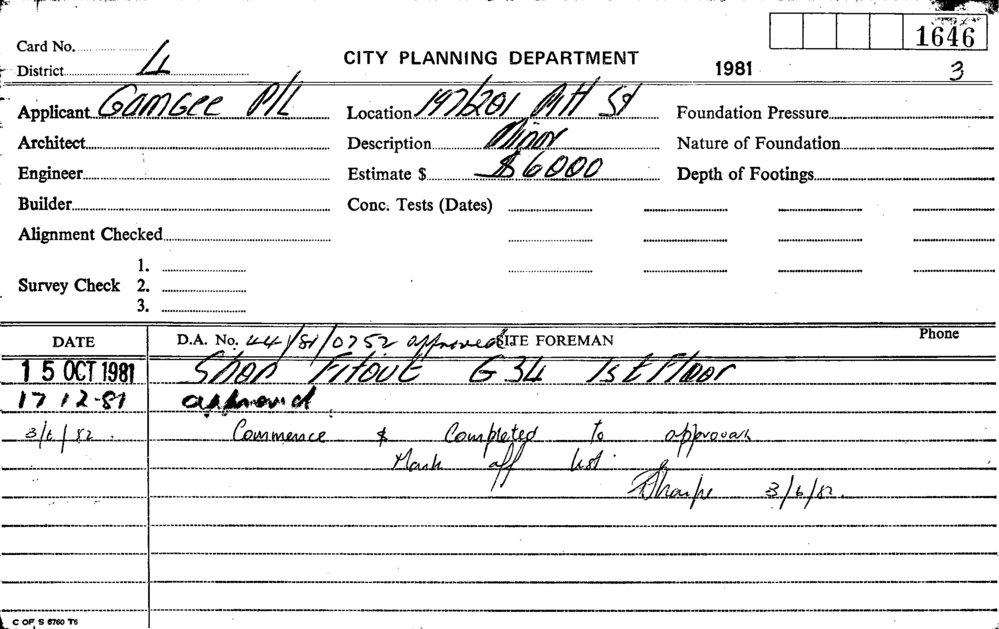 1646
Card No.
CITY PLANNING DEPARTMENT
District 4
1981 3
Applicant GamGee P/L Location 197/201 Pitt St Foundation Pressure
Architect Description Minor Nature of Foundation
Engineer Estimate $ $6000 Depth of Footings
Builder Conc. Tests (Dates)
Alignment Checked
1.
Survey Check 2.
3.
DATE D.A. No. 44/81/0752 approved SITE FOREMAN Phone
15 OCT 1981 Shop Fitout G34 1st Floor
17 12-81 approved
3/6/82. Commence & Completed to approval
Mark off list.
Sharpe 3/6/82.
C OF S 6760 T6